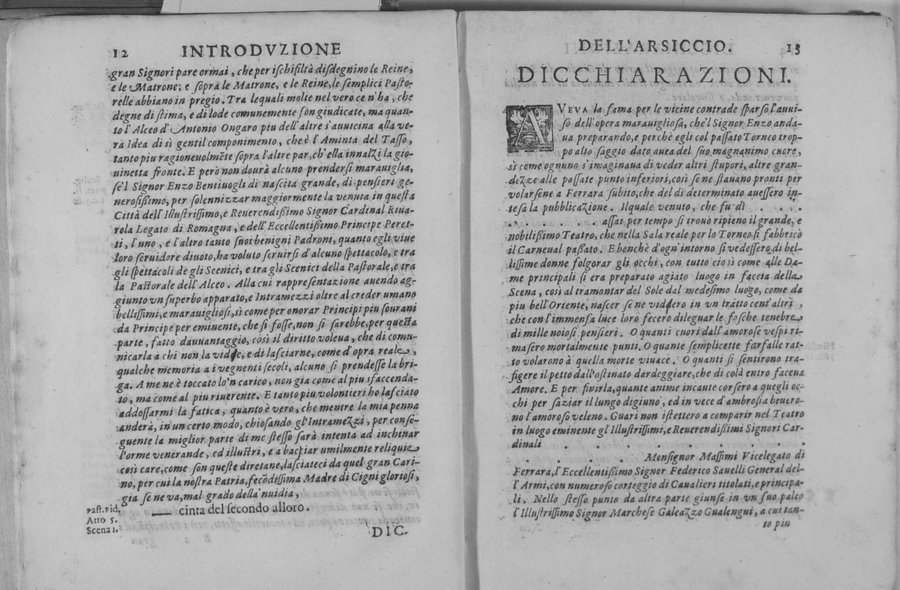 12 INTRODVZIONE
gran Signori pare ormai, che per ischifiltà disdegnino le Reine,
e le Matrone; e sopra le Matrone, e le Reine, le semplici Pasto-
relle abbiano in pregio. Tra lequali molte nel vero ce n'ha, che
degne di stima, e di lode comunemente son giudicate, ma quan-
to l'Alceo d'Antonio Ongaro piu dell'altre s'auuicina alla ve-
ra Idea di sì gentil componimento, che è l'Aminta del Tasso,
tanto piu ragioneuolmēte sopra l'altre par, ch'ella innalzi la gio-
uinetta fronte. E però non dourà alcuno prendersi marauiglia,
se'l Signor Enzo Bentiuogli di nascita grande, di pensieri ge-
nerosissimo, per solennizzar maggiormente la venuta in questa
Città dell'Illustrissimo, e Reuerendissimo Signor Cardinal Riua-
rola Legato di Romagna, e dell'Eccellentissimo Principe Peret-
ti, l'uno, e l'altro tanto suoi benigni Padroni, quanto egli viue
loro seruidore diuoto, ha voluto seruirsi d'alcuno spettacolo, e tra
gli spettacoli de gli Scenici, e tra gli Scenici della Pastorale, e tra
la Pastorale dell'Alceo. Alla cui rappresentazione auendo ag-
giunto vn superbo apparato, e Intramezzi oltre al creder umano
bellissimi, e marauigliosi, sì come per onorar Principi piu sourani
da Principe per eminente, che si fosse, non si sarebbe, per questa
parte, fatto dauuantaggio, così il diritto voleua, che di comu-
nicarla a chi non la vide, e di lasciarne, come d'opra reale,
qualche memoria a i vegnenti secoli, alcuno si prendesse la bri-
ga. A me ne è toccato lo'n carico, non già come al piu sfaccenda-
to, ma come al piu riuerente. E tanto piu volontieri ho lasciato
addossarmi la fatica, quanto è vero, che mentre la mia penna
anderà, in un certo modo, chiosando gl'Intramezzi, per conse-
guente la miglior parte di me stesso sarà intenta ad inchinar
l'orme venerande, ed illustri, e a baciar umilmente reliquie
così care, come son queste diretane, lasciateci da quel gran Cari-
no, per cui la nostra Patria, fecōdissima Madre di Cigni gloriosi,
gia se ne va, mal grado della'nuidia,
Past. fid.
Atto 5.
Scena 1.
cinta del secondo alloro.
DIC.
DELL'ARSICCIO. 13
DICCHIARAZIONI.
AVEVA la fama per le vicine contrade sparso l'auui-
so dell'opera marauigliosa, che'l Signor Enzo anda-
ua preparando, e perchè egli col passato Torneo trop-
po alto saggio dato auea del suo magnanimo cuore,
sì come ognuno s'imaginaua di veder altri stupori, altre gran-
dezze alle passate punto inferiori, così se ne stauano pronti per
volarsene a Ferrara subito, che del dì determinato auessero in-
tesa la pubblicazione. Ilquale venuto, che fu dì . . . .
. . . . . . . assai per tempo si trouò ripieno il grande, e
nobilissimo Teatro, che nella Sala reale per lo Torneo si fabbricò
il Carneual passato. E benchè d'ogn'intorno si vedessero di bel-
lissime donne folgorar gli occhi, con tutto ciò sì come alle Da-
me principali si era preparato agiato luogo in faccia della
Scena, così al tramontar del Sole dal medesimo luogo, come da
piu bell'Oriente, nascer se ne videro in un tratto cent'altri,
che con l'immensa luce loro fecero dileguar le fosche tenebre
di mille noiosi pensieri. O quanti cuori dall'amorose vespi ri-
masero mortalmente punti. O quante semplicette farfalle rat-
to volarono à quella morte viuace. O quanti si sentirono tra-
figere il petto dall'ostinato dardeggiare, che di colà entro faceua
Amore. E per finirla, quante anime incaute corsero a quegli oc-
chi per saziar il lungo digiuno, ed in vece d'ambrosia beuero-
no l'amoroso veleno. Guari non istettero a comparir nel Teatro
in luogo eminente gl'Illustrissimi, e Reuerendissimi Signori Car-
dinali . . . . . . . . . . .
. . . . . . Monsignor Massimi Vicelegato di
Ferrara, l'Eccellentissimo Signor Federico Sauelli General del-
l'Armi, con numeroso corteggio di Caualieri titolati, e principa-
li. Nello stesso punto da altra parte giunse in vn suo palco
l'Illustrissimo Signor Marchese Galeazzo Gualengui, a cui tan-
to piu